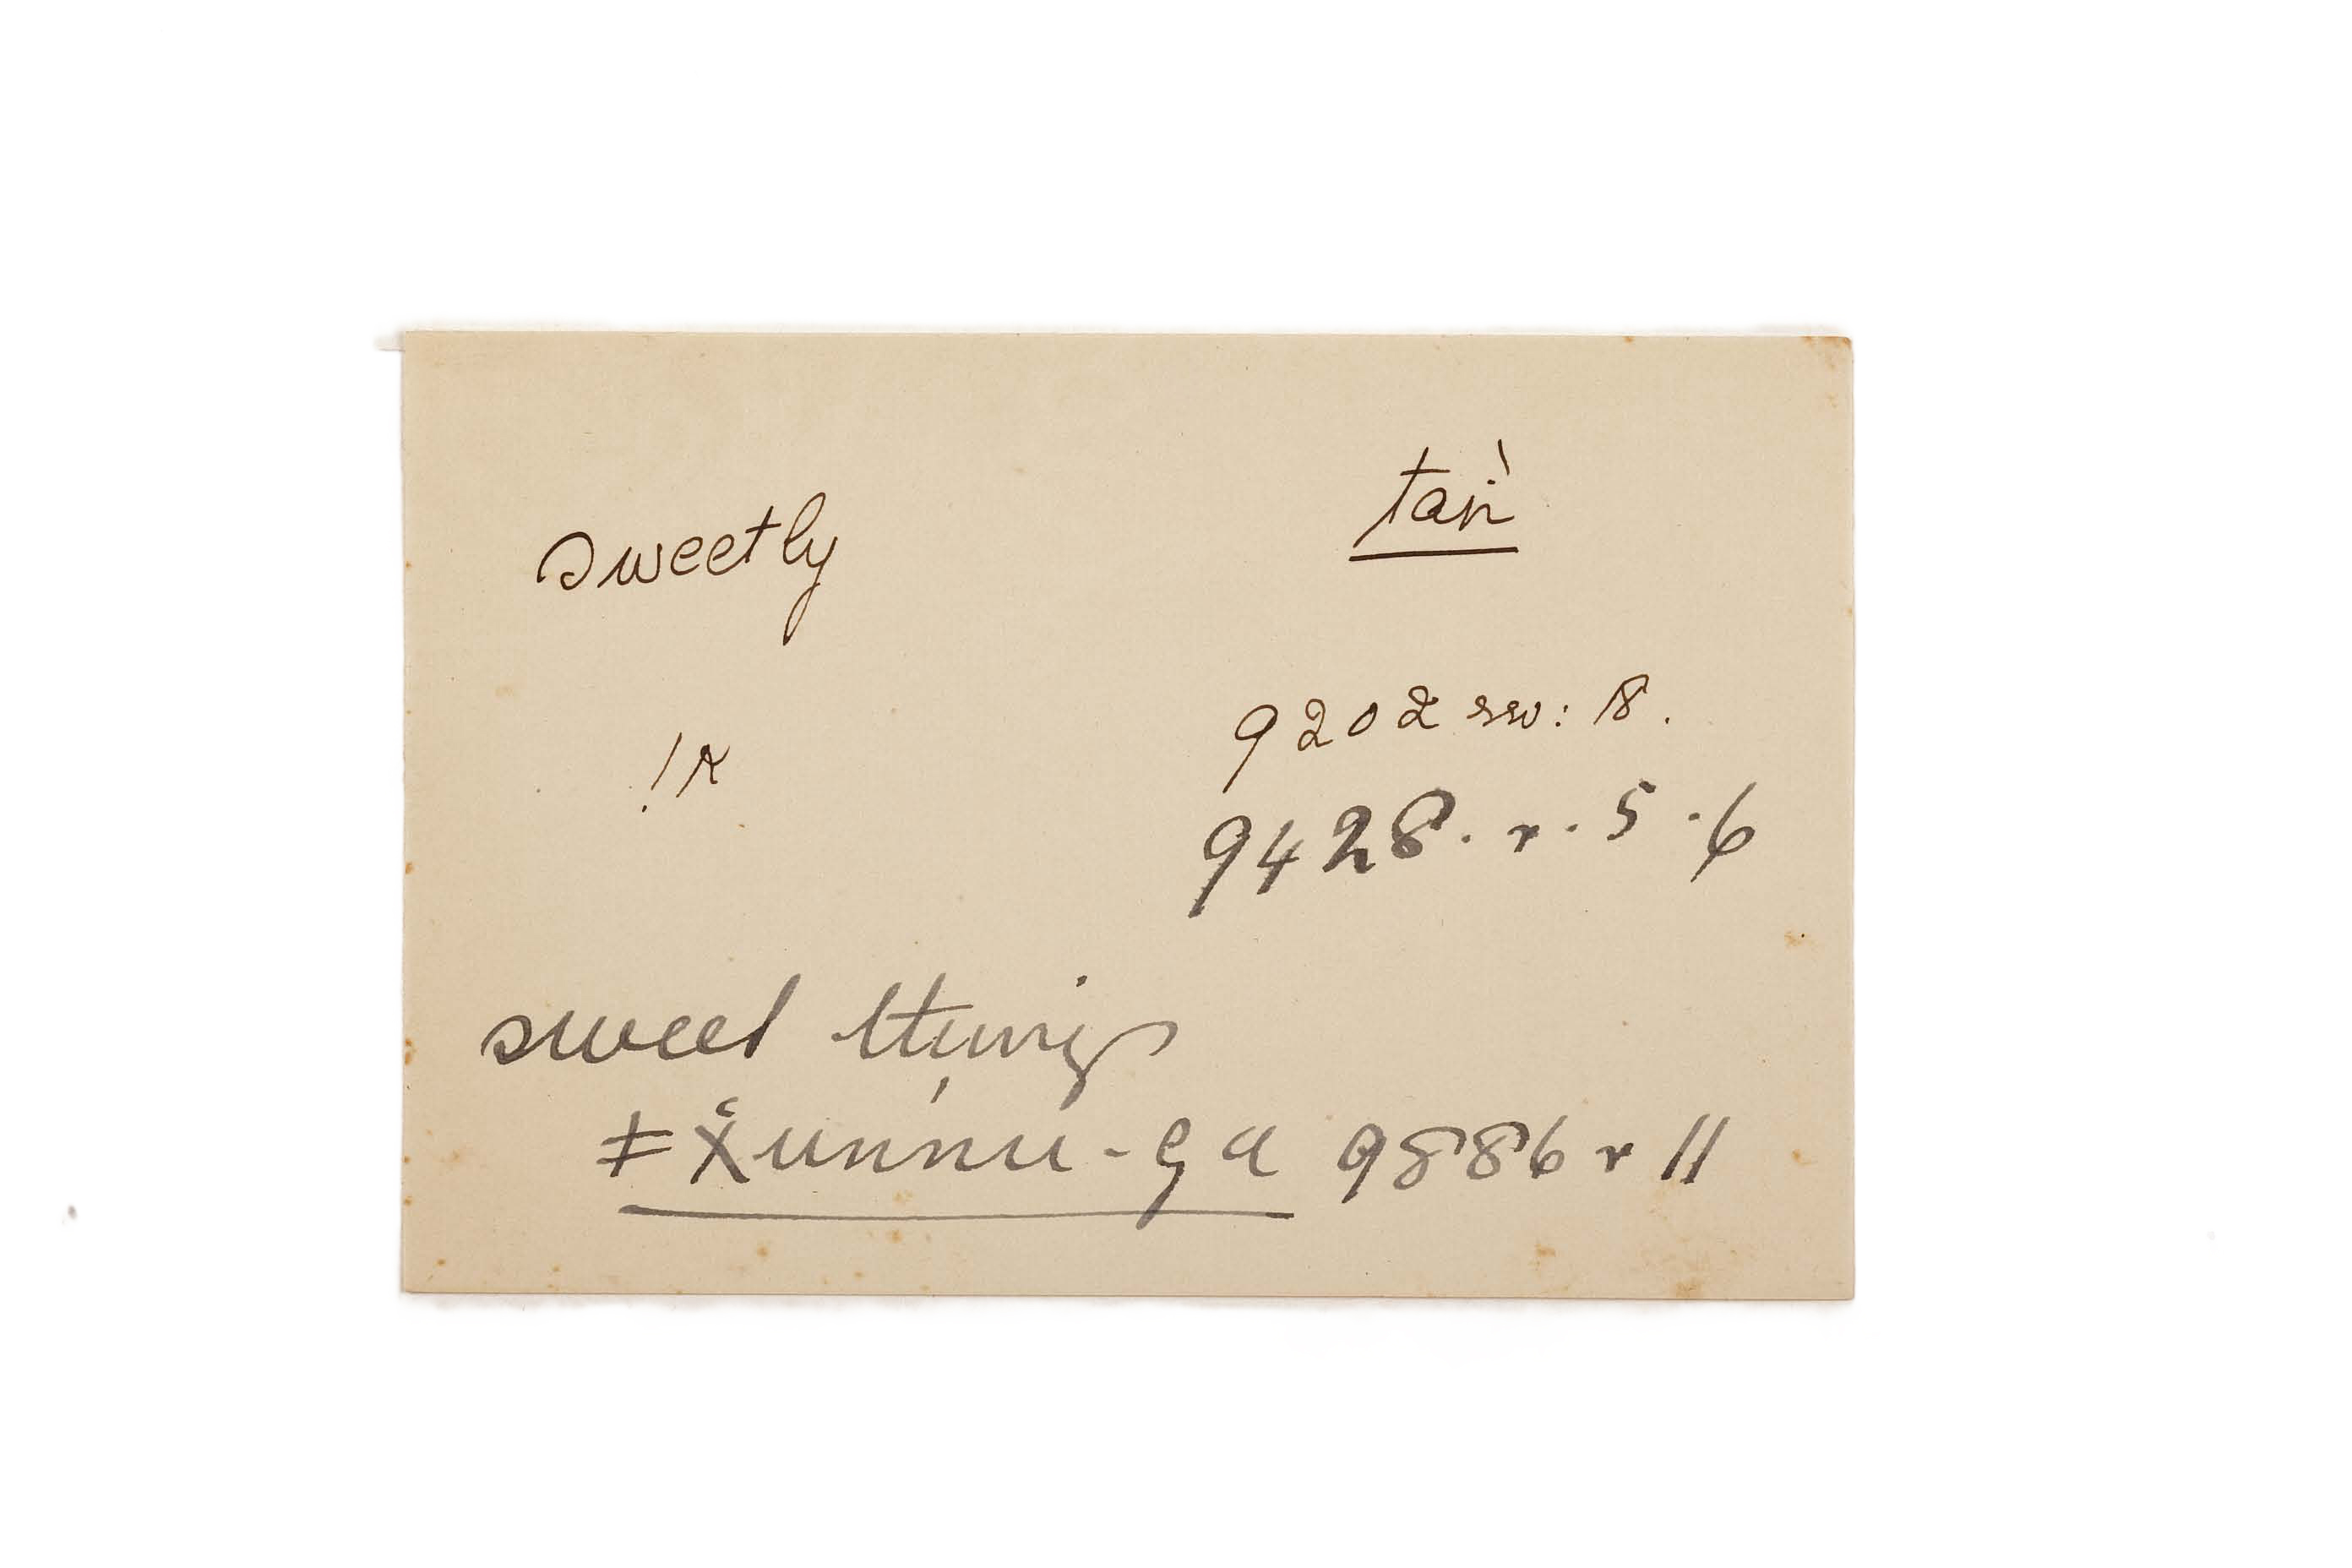 sweetly taṅ̀
!k 9202 rev: 8.
9428. r. 5.6
sweet things
ǂX̆unnu-ga 9886 r 11